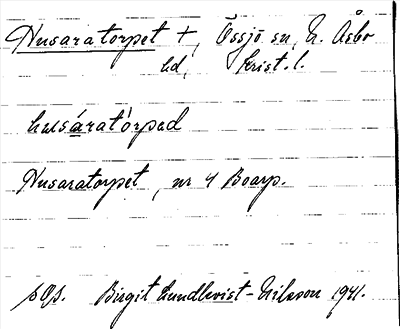 Husaratorpet +, Össjö sn, N. Åsbo
hd, Krist. l.
husáratòrpad
Husaratorpet, nr 4 Boarp.
Birgit Lundkvist-Nilsson 1941.